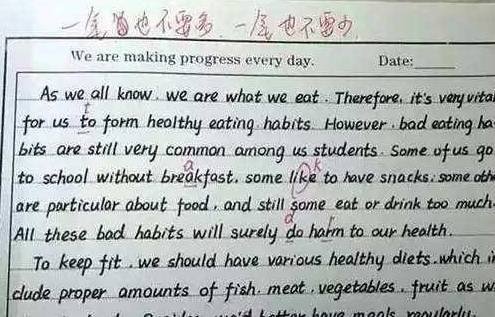 一尾 也不要多,一尾也不要少
We are making progress every day. Date:
As we all know, we are what we eat. Therefore, it's very vital
for us to form healthy eating habits. However, bad eating ha-
bits are still very common among us students. Some of us go
to school without breakfast, some like to have snacks, some oth
are particular about food, and still some eat or drink too much.
All these bad habits will surely do harm to our health.
To keep fit, we should have various healthy diets, which in
clude proper amounts of fish, meat, vegetables, fruit as w
better have meals regularly.